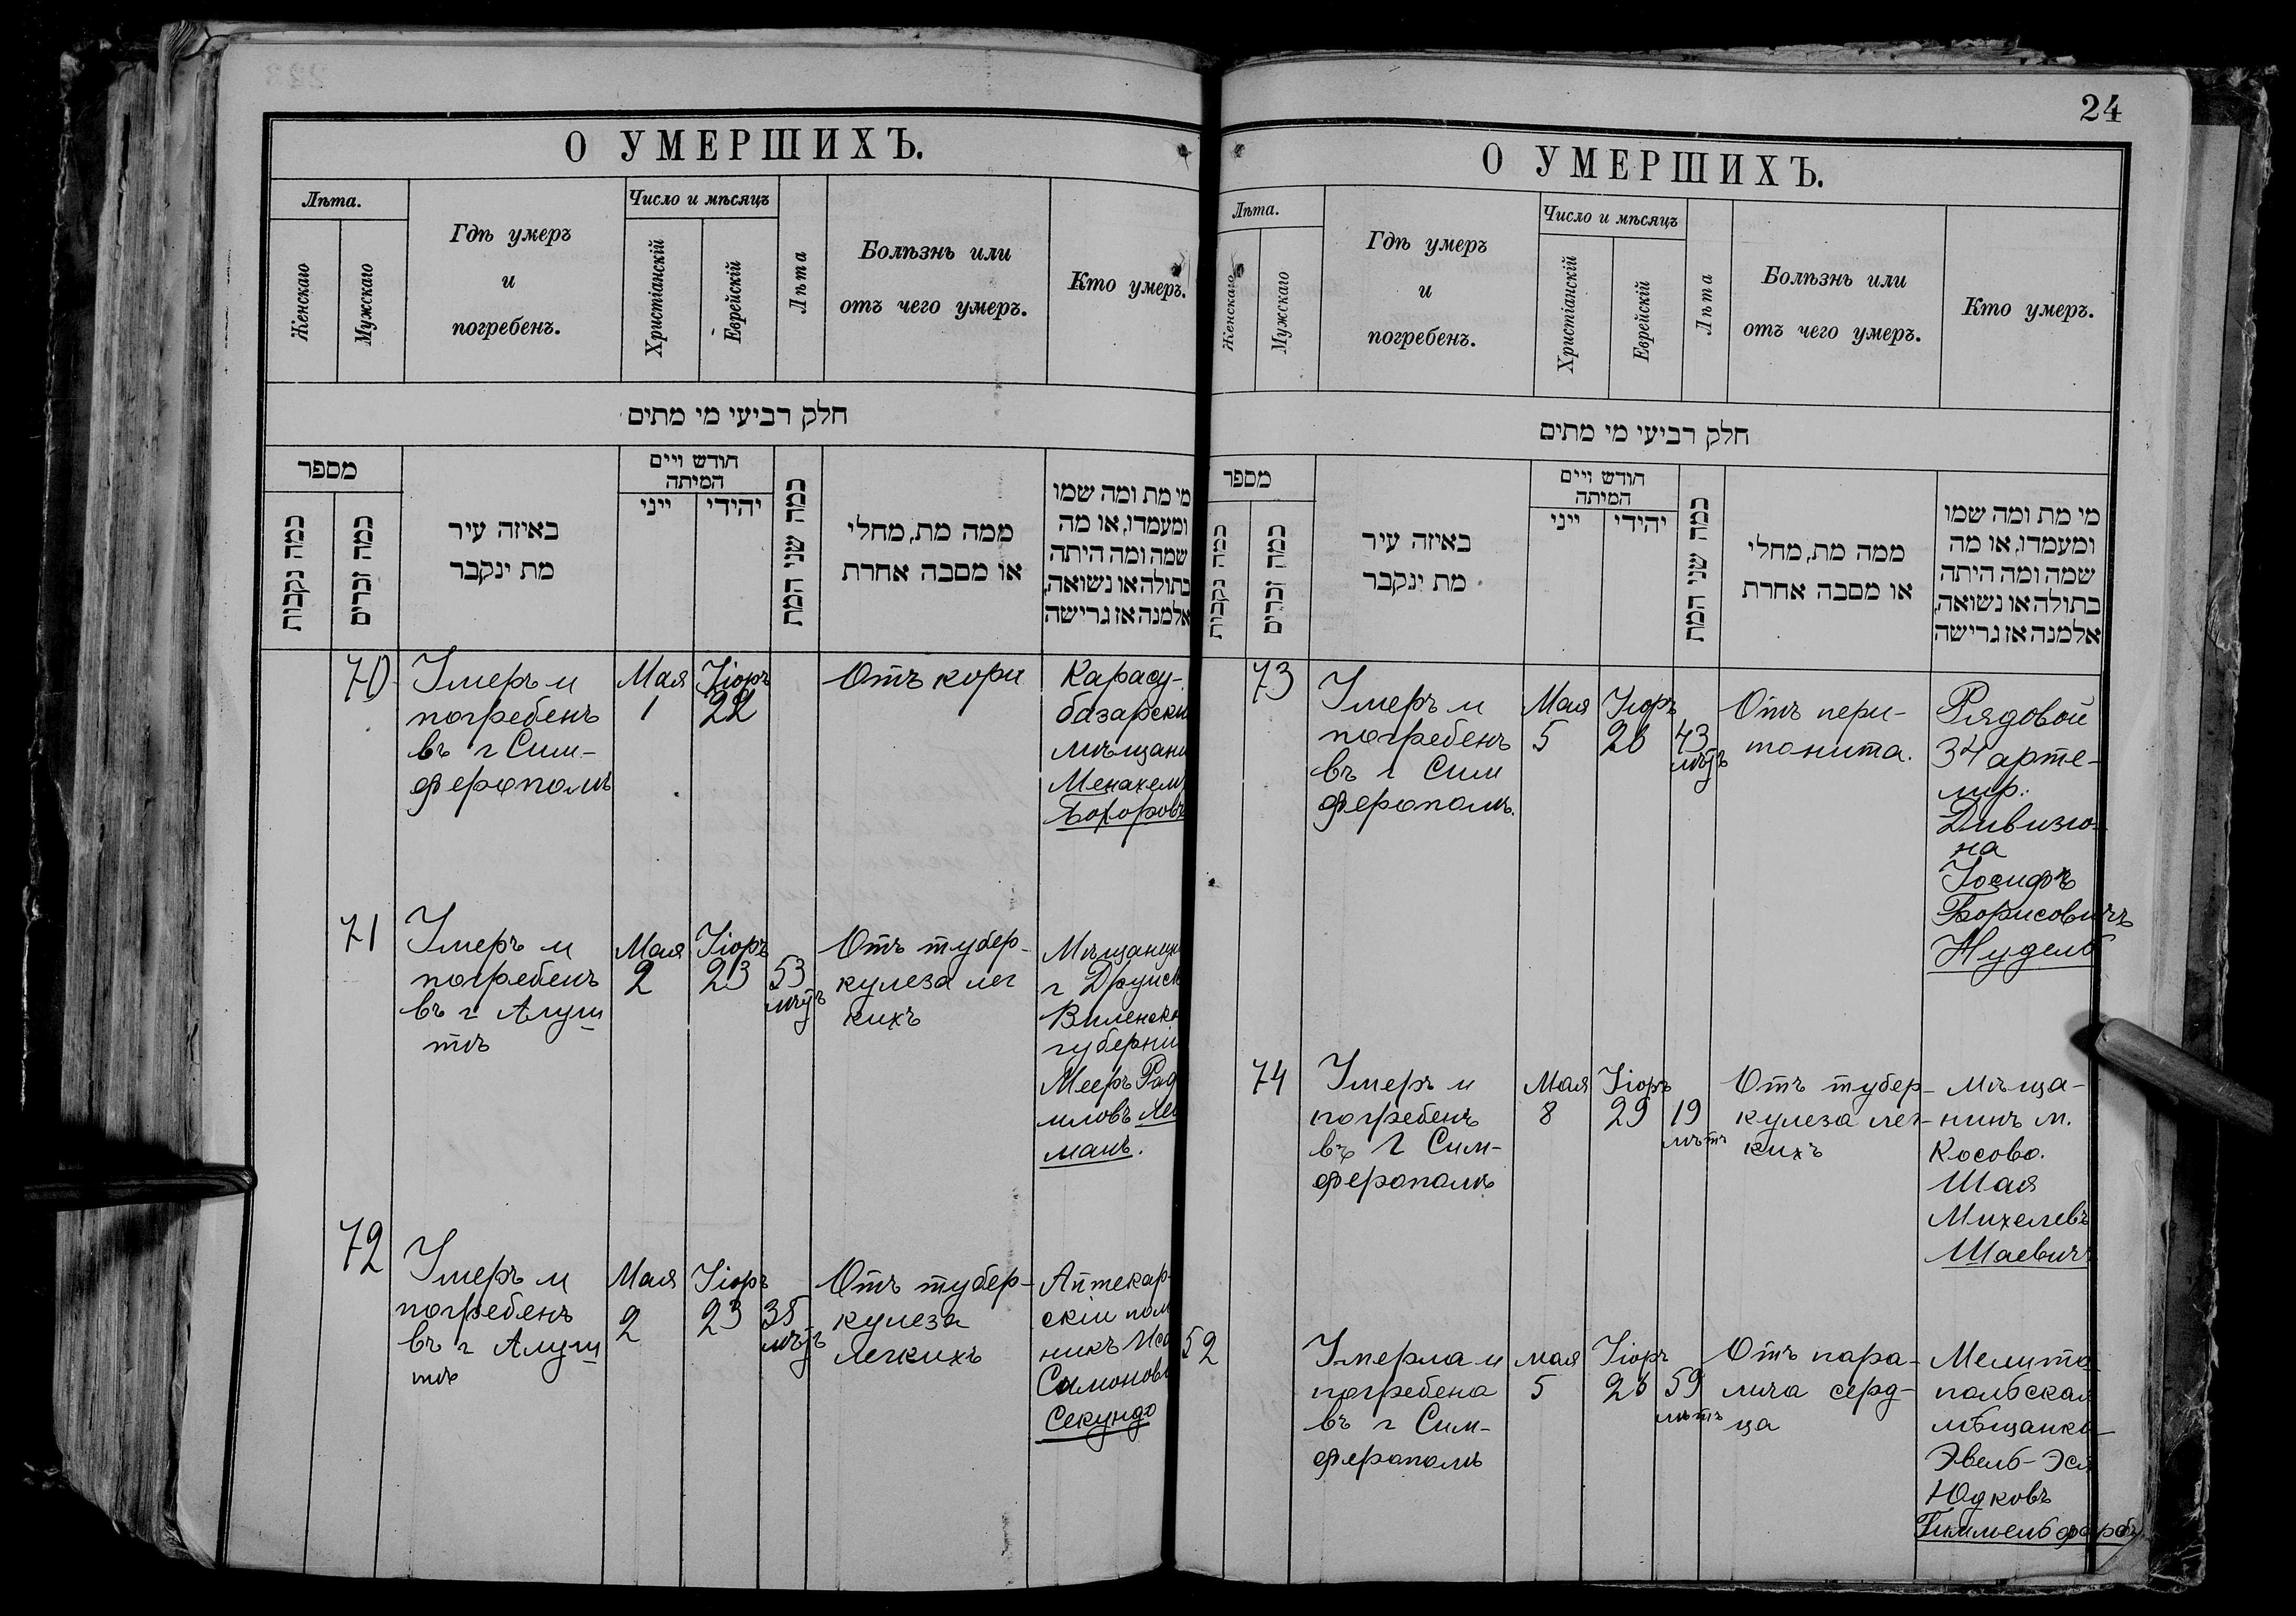 24
О УМЕРШИХЪ.
Лѣта.
Женскаго
Мужскаго
Гдѣ умеръ
и
погребенъ.
Число и мѣсяцъ
Христіанскій
Еврейскій
Лѣта
Болѣзнь или
отъ чего умеръ.
Кто умеръ.
חלק רביעי מי מתים
מספר
כמה נקבות
כמה זכרים
באיזה עיר
מת ינקבר
חודש ויים
המיתה
ייני
יהידי
כמה שני המת
ממה מת, מחלי
או מסבה אחרת
מי מת ומה שמו
ומעמדו, או מה
שמה ומה היתה
בתולה או נשואה,
אלמנה אז גרישה
70
Умеръ и
погребенъ
въ г Сим-
ферополѣ
Мая
1
Іюръ
22
Отъ кори
Карасу-
базарски
мѣщани
Менахем
Бохоровъ
71
Умеръ и
погребенъ
въ г Алуш
тѣ
Мая
2
Іюръ
23
53
лѣтъ
Отъ тубер-
кулеза лег
кихъ
Мѣщанин
г Друиск
Виленско
губерніи
Мееръ Фад
иловъ
манъ.
72
Умеръ и
погребенъ
въ г Алуш
тѣ
Мая
2
Іюръ
23
лѣтъ
Отъ тубер-
кулеза
легкихъ
Аптекар-
скіи пом
никъ Иса
Симонов
Секундо
О УМЕРШИХЪ.
Лѣта.
Женскаго
Мужскаго
Гдѣ умеръ
и
погребенъ.
Число и мѣсяцъ
Христіанскій
Еврейскій
Лѣта
Болѣзнь или
отъ чего умеръ.
Кто умеръ.
חלק רביעי מי מתים
מספר
כמה נקבות
כמה זכרים
באיזה עיר
מת ינקבר
חודש ויים
המיתה
ייני
יהידי
כמה שני המת
ממה מת, מחלי
או מסבה אחרת
מי מת ומה שמו
ומעמדו, או מה
שמה ומה היתה
בתולה או נשואה,
אלמנה אז גרישה
73
Умеръ и
погребенъ
въ г Сим
ферополѣ.
Мая
5
Іюръ
26
43
лѣтъ
Отъ пери-
тонита.
Рядовой
34 арте-
лир.
Дивизіо-
на
Іосифъ
Борисовичъ
Нудель
74
Умеръ и
погребенъ
въ г Сим-
ферополѣ
Мая
8
Іюръ
29
19
лѣтъ
Отъ тубер-
кулеза лег-
кихъ
Мѣща-
нинъ м.
Косово.
Шая
Михелевъ
Шаевичъ
52
Умерла и
погребена
въ г Сим-
ферополѣ
мая
5
Іюръ
26
59
лѣтъ
Отъ пара-
лича серд-
ца
Мелито-
польская
мѣщанка
Эвель-Эся
Юдковъ
Гиммельфарбъ